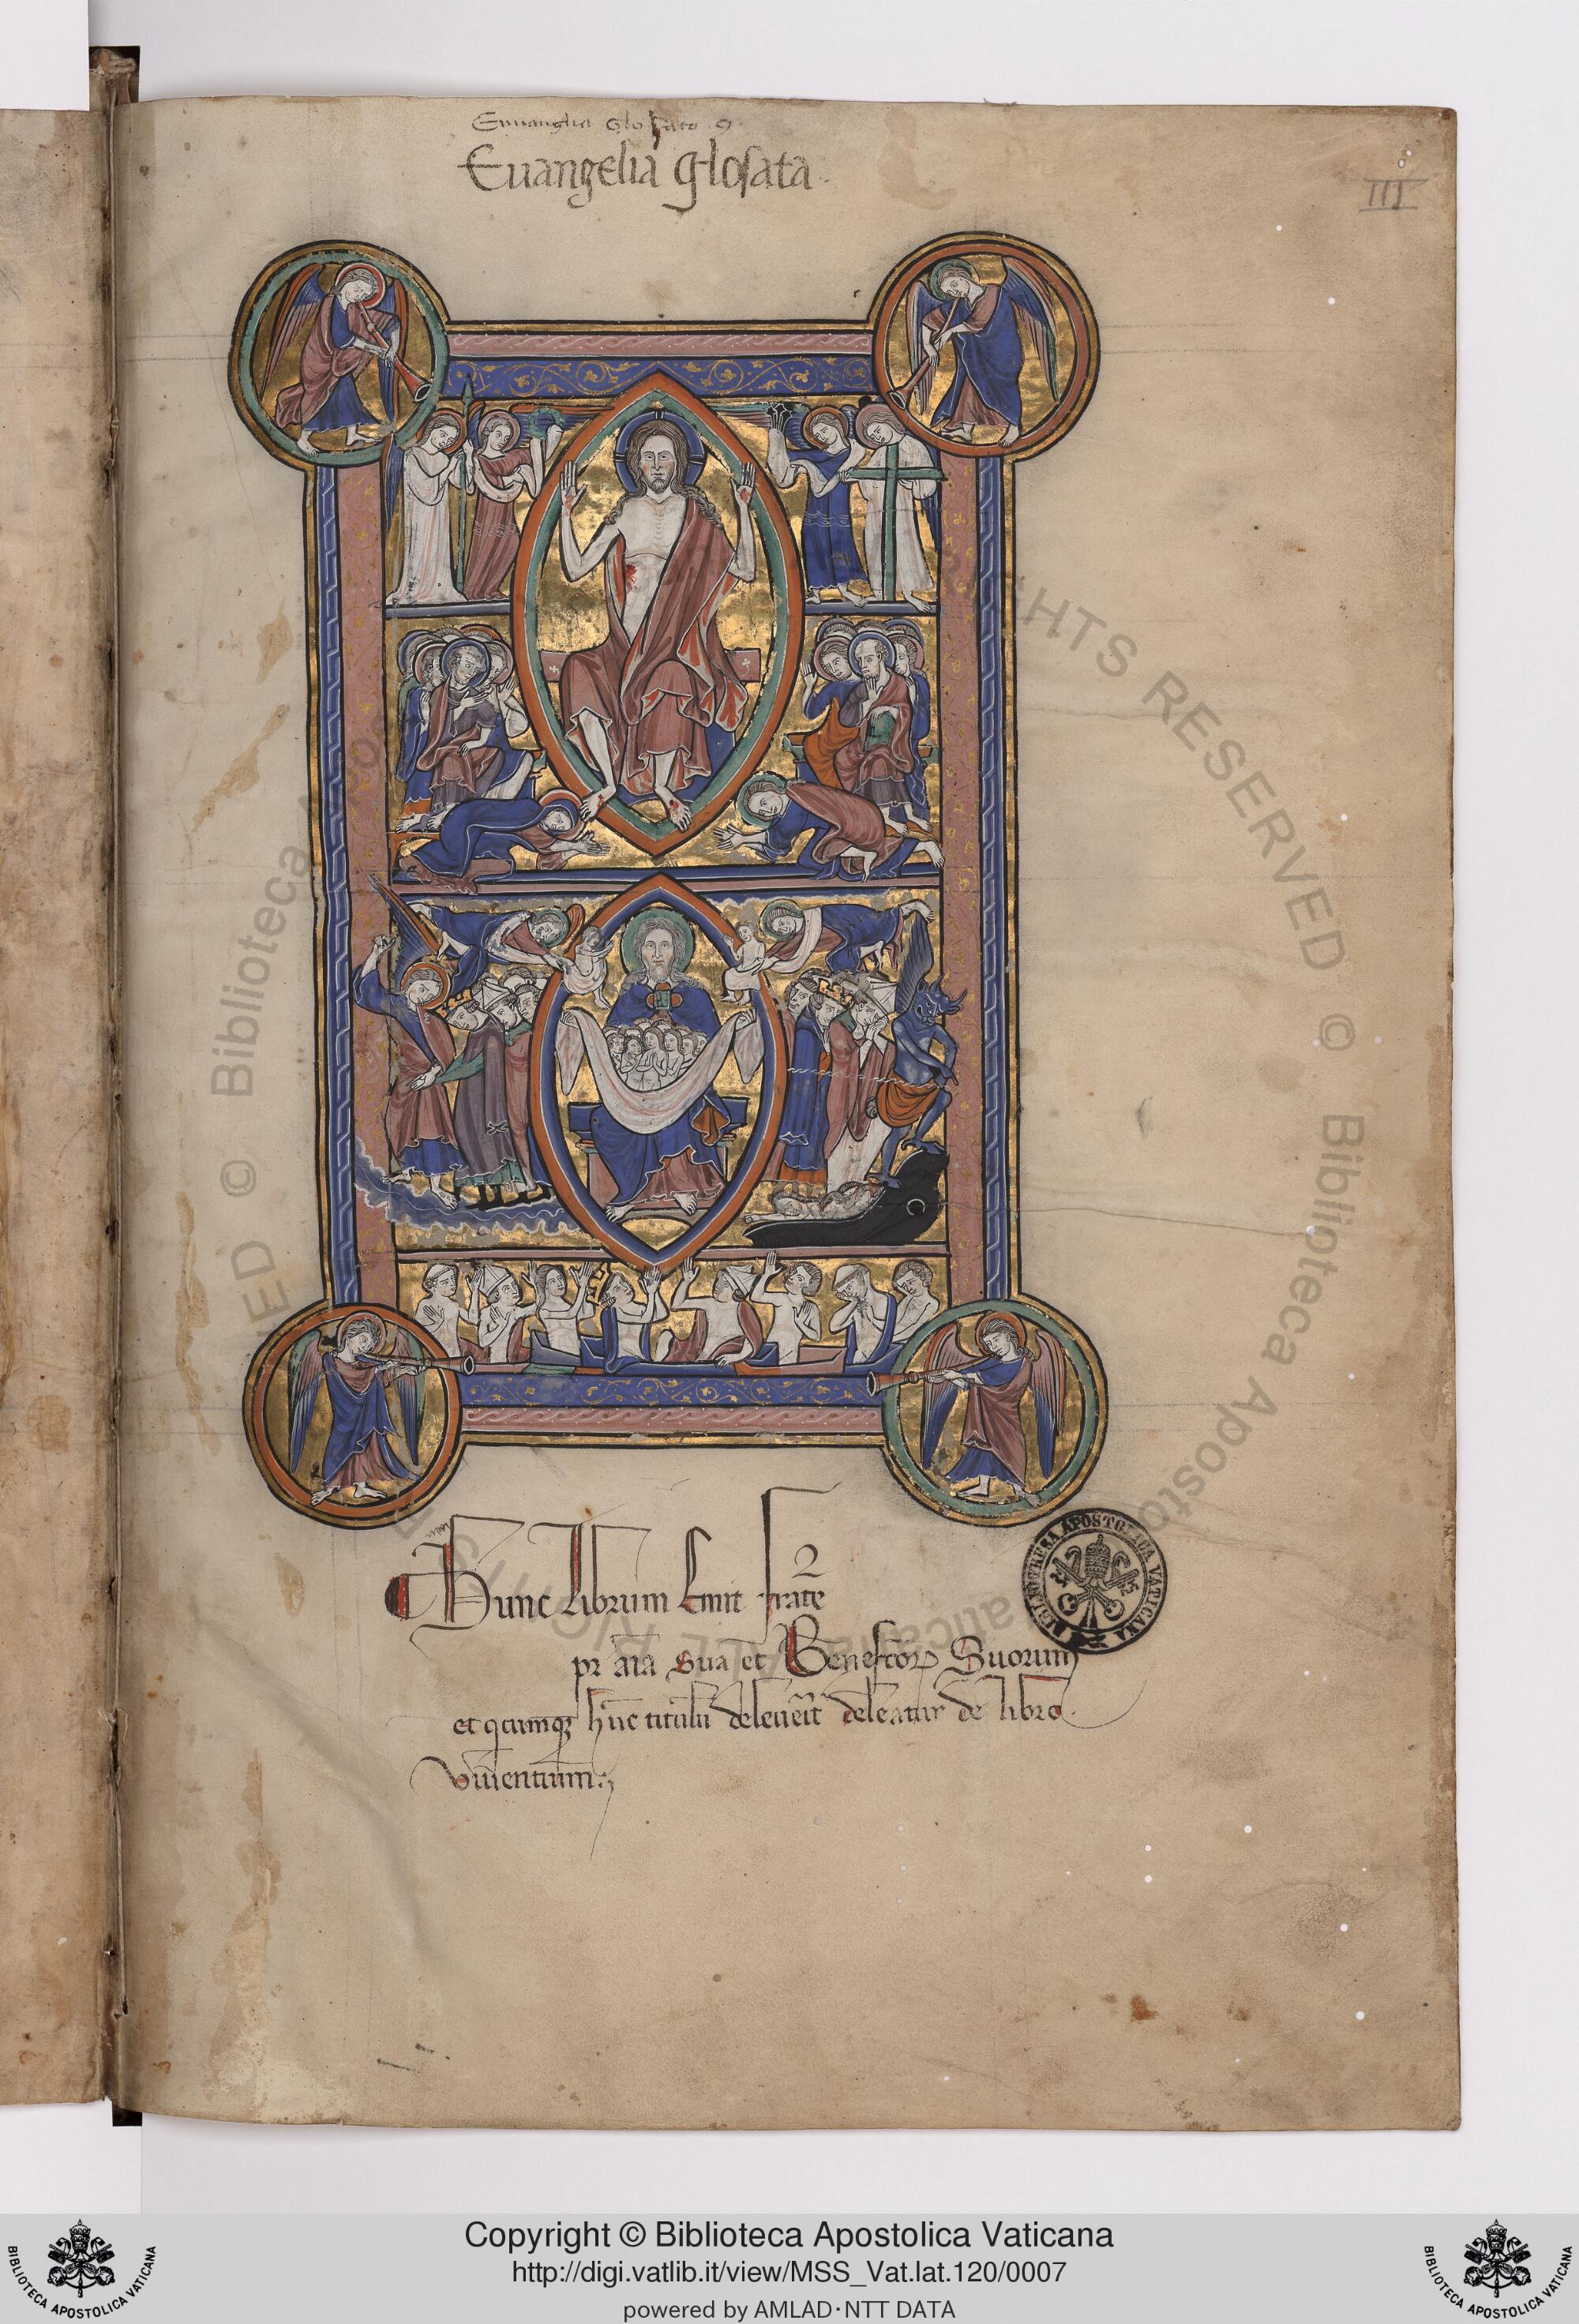 Euuanglia Glosata 9
Euangelia glosata
III
Hunc librum Emit frate2
pr aīa sua et Benefcorꝝ Suorum
et qcumqꝫ hūc titulū deleuerit deleatur de libro
viuentium
BIBLIOTHECA APOSTOLICA VATICANA
© Biblioteca Apostolica Vaticana ALL RIGHTS RESERVED © Biblioteca Apostolica Vaticana ALL RIGHTS RESERVED
Copyright © Biblioteca Apostolica Vaticana
http://digi.vatlib.it/view/MSS_Vat.lat.120/0007
powered by AMLAD·NTT DATA
BIBLIOTECA APOSTOLICA VATICANA
BIBLIOTECA APOSTOLICA VATICANA